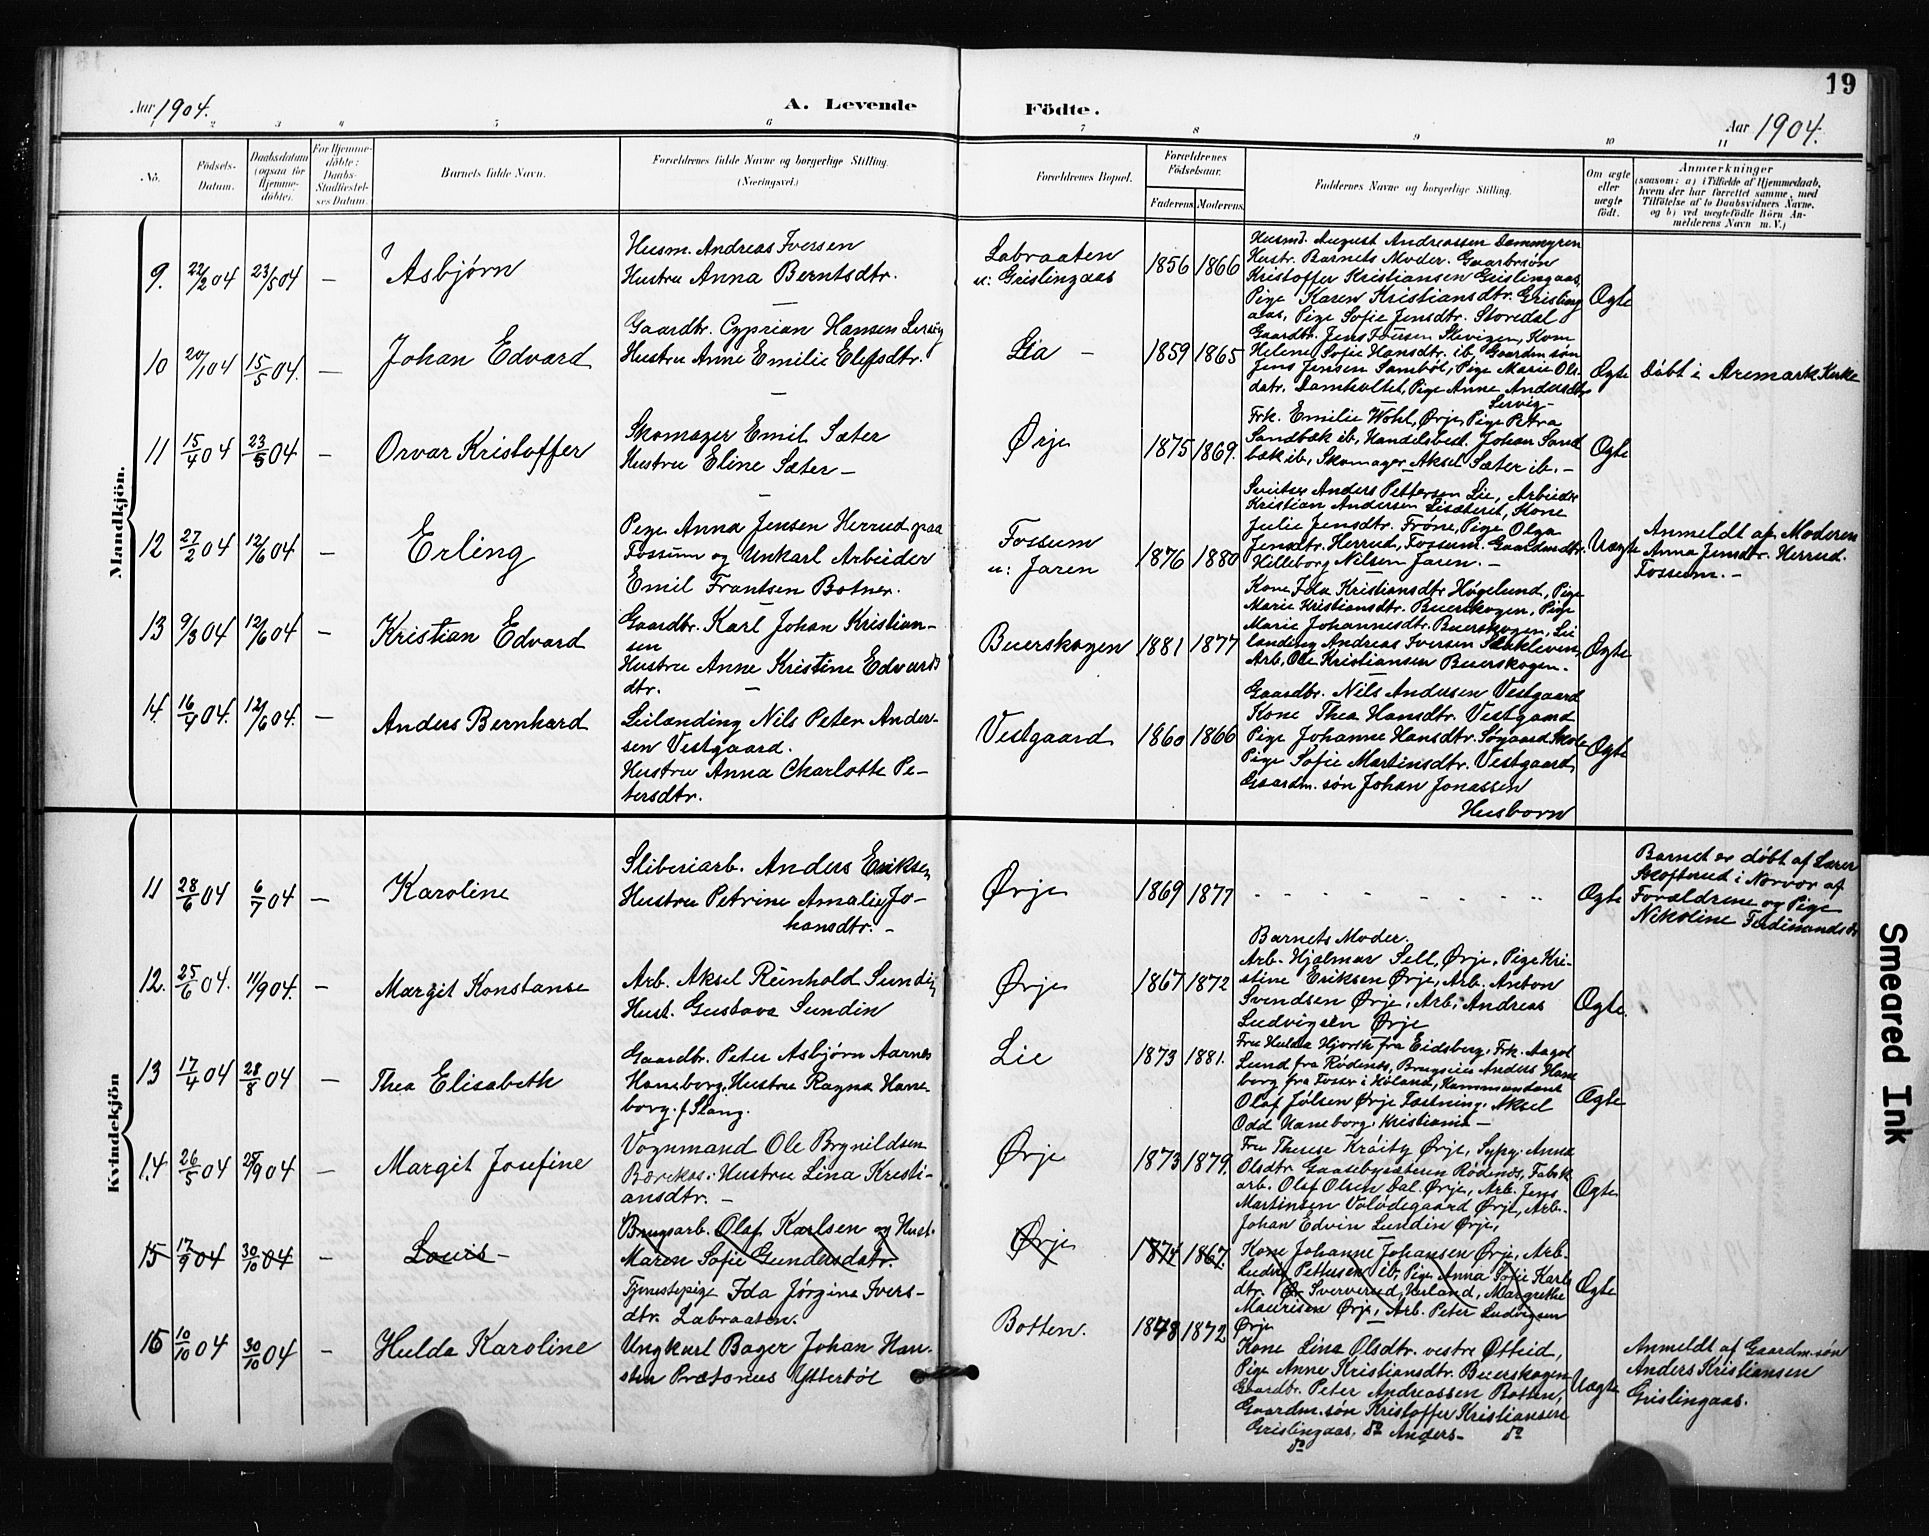 19
Aar 1904.
A. Levende Födte.
Aar 1904.
1 2 3 4 5 6 7 8 9 10 11
No.
Födsels-Datum.
Daabsdatum (ogsaa for Hjemmedöbte).
For Hjemmedöbte: Daabs-Stadfæstelses Datum.
Barnets fulde Navn.
Forældrenes fulde Navne og borgerlige Stilling. (Næringsvei.)
Forældrenes Bopæl.
Forældrenes Födselsaar.
Faderens. Moderens.
Faddernes Navne og borgerlige Stilling.
Om ægte eller uægte födt.
Anmærkninger (saasom: a) i Tilfælde af Hjemmedaab, hvem der har forrettet samme, med Tilföielse af to Daabsvidners Navne, og b) ved uægtefödte Börn Anmelderens Navn m. V.)
Mandkjön.
9. 22/2 04 23/5 04 — Asbjørn
Husm. Andreas Iversen
Hustru Anna Berntsdtr.
Labraaten
u: Grislingaas
1856 1866
Husmd. August Andreassen Dammyren
Hustr. Barnets Moder. Gaarbrsøn
Kristoffer Kristiansen Grislingaas,
Pige Karen Kristiansdtr. Grisling
aas, Pige Sofie Jensdtr. Storedal
Ægte
10 20/1 04 15/5 04. — Johan Edvard
Gaardbr. Cyprian Hansen Lervig
Hustru Anne Emilie Elefsdtr.
Lia —
1859 1865
Gaardbr. Jens Jensen Slevigen, Kone
Helene Sofie Hansdtr. ib, Gaardm.søn
Jens Jensen Sambøl, Pige Marie Ols
datr. Damholtet, Pige Anne Andersdtr
Lervig —
Ægte
Døbt i Aremark Kirke
11 15/4 04 23/5 04 — Orvar Kristoffer
Skomager Emil Sæter
Hustru Eline Sæter —
Ørje
1875 1869.
Frk. Emilie Wohl, Ørje, Pige Petra
Sandbæk ib, Handelsbest. Johan Sand
bæk ib, Skomager Aksel Sæter ib. —
Ægte
12 27/2 04 12/6 04 — Erling
Pige Anna Jensen Herrud paa
Fossum og Unkarl Arbeider
Emil Frantsen Botner.
Fossum
u: Jaren
1876 1880
Anders Pettersen Lie, Arbeider
Kristian Andersen Lisæteret, Kone
Julie Jensdtr. Frøne, Pige Olga
Jensdtr. Herrud, Fossum. Gaardmdtr.
Hilleborg Nilsen Jaren. —
Uægte
Anmeldt af Moderen
Anna Jensdtr. Herrud.
Fossum. —
13 9/3 04 12/6 04 — Kristian Edvard
Gaardbr. Karl Johan Kristian—
sen
Hustru Anne Kristine Edvards
dtr. —
Buerskogen
1881 1877
Kone Ida Kristiansdtr Høgelund, Pige
Marie Kristiansdtr. Buerskogen, Pige
Marie Johannesdtr. Buerskogen, Lei
lænding Andreas Iversen
Arb. Ole Kristiansen Buerskogen.
Ægte
14. 16/4 04. 12/6 04. — Anders Bernhard
Leilænding Nils Peter Ander—
sen Vestgaard.
Hustru Anna Charlotte Pe—
tersdtr.
Vestgaard
1860 1866
Gaardbr. Nils Andersen Vestgaard
Kone Thea Hansdtr. Vestgaard
Pige Johanne Hansdtr. Søgaard
Pige Sofie Martinsdtr. Vestgaard,
Gaardm. søn Johan Jonassen
Husborn
Ægte
Kvindekjön
11 28/6 04 6/7 04 — Karoline
Sliberiarb. Anders Eriksen
Hustru Petrine Amalie Jo—
hansdtr. —
Ørje
1869 1877
- - - - - -
Ægte
Barnet er døbt af Lærer
i Nærvær af
Forældrene og Pige
Nikoline Ferdinandsdtr
12. 25/6 04. 11/9 04. — Margit Konstanse
Arb. Aksel Reinhold Sundin,
Hust. Gustava Sundin
Ørje
1867 1872
Barnets Moder.
Arb. Hjalmar Sell, Ørje, Pige Kri—
stine Eriksen Ørje, Arb. Anton
Svendsen Ørje, Arb. Andreas
Ludvigsen Ørje
Ægte.
13 17/4 04 28/8 04 — Thea Elisabeth
Gaardbr. Peter Asbjørn Aarnes
Haneborg, Hustru Ragna Hane
borg. f. Stang.
Lie
1873 1881.
Fru Hulda Hjorth fra Eidsberg, Frk. Aagot
Lund fra Rødenes, Brugseier Anders Hane
borg fra Fosser i Høland, Kommandant
Olaf Jølsen Ørje Fæstning, Aksel
Odd Haneborg. Kristiania —
Ægte
14 26/5 04 25/9 04 — Margit Josefine
Vognmand Ole Brynildsen
Hustru Lina Kristi—
ansdtr. —
Ørje
1873 1879.
Fru Therese Krøity Ørje, Sypg. Anna
Olsdtr. Gaasebysæteren Rødenes, Fabrk
arb. Olaf Olsen Dal. Ørje, Arb. Jens
Martinsen Ørje, Arb.
Johan Edvin Lundin Ørje,
Ægte
15 17/9 04 30/10 04 — Louis —
Brugsarb. Olaf Karlsen og Hust.
Maren Sofie Gundersdatr.
Ørje
1874 1867.
Kone Johanne Johansen Ørje, Arb.
Ludvig Pettersen ib, Pige Anna Sofie Karls
dtr. Sververud, Herland, Margrethe
Mauritsen Ørje, Arb. Peter Ludvigsen
Ørje
Ægte
16 10/10 04 30/10 04 — Hulda Karoline
Tjenestepige Ida Jørgine Ivers—
dtr. Labraaten.
Ungkarl Bager Johan Han—
sen Prætonius Ytterbøl
Botten.
1878 1872
Kone Lina Olsdtr. vestre Øtteid,
Pige Anne Kristiansdtr. Buerskogen
Gaardbr. Peter Andreassen Botten,
Gaardm. søn Kristoffer Kristiansen
Grislingaas, do Anders — do
do
Uægte
Anmeldt af Gaardm.søn
Anders Kristiansen
Grislingaas.
Smeared Ink